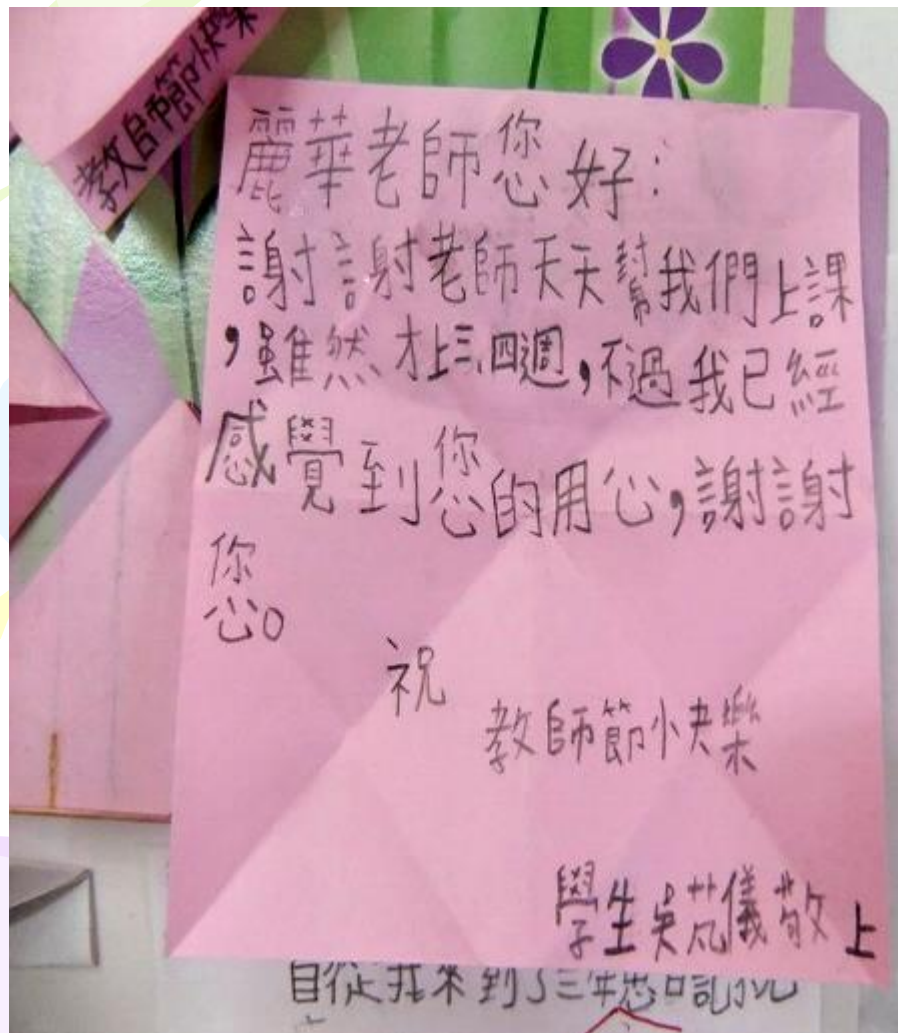 教師節快樂
麗華老師您好:
謝謝老師天天幫我們上課
,雖然才上三、四週,不過我已經
感覺到您的用心,謝謝
您。
祝
教師節快樂
學生吳芃儀敬上
自從我來到了三年